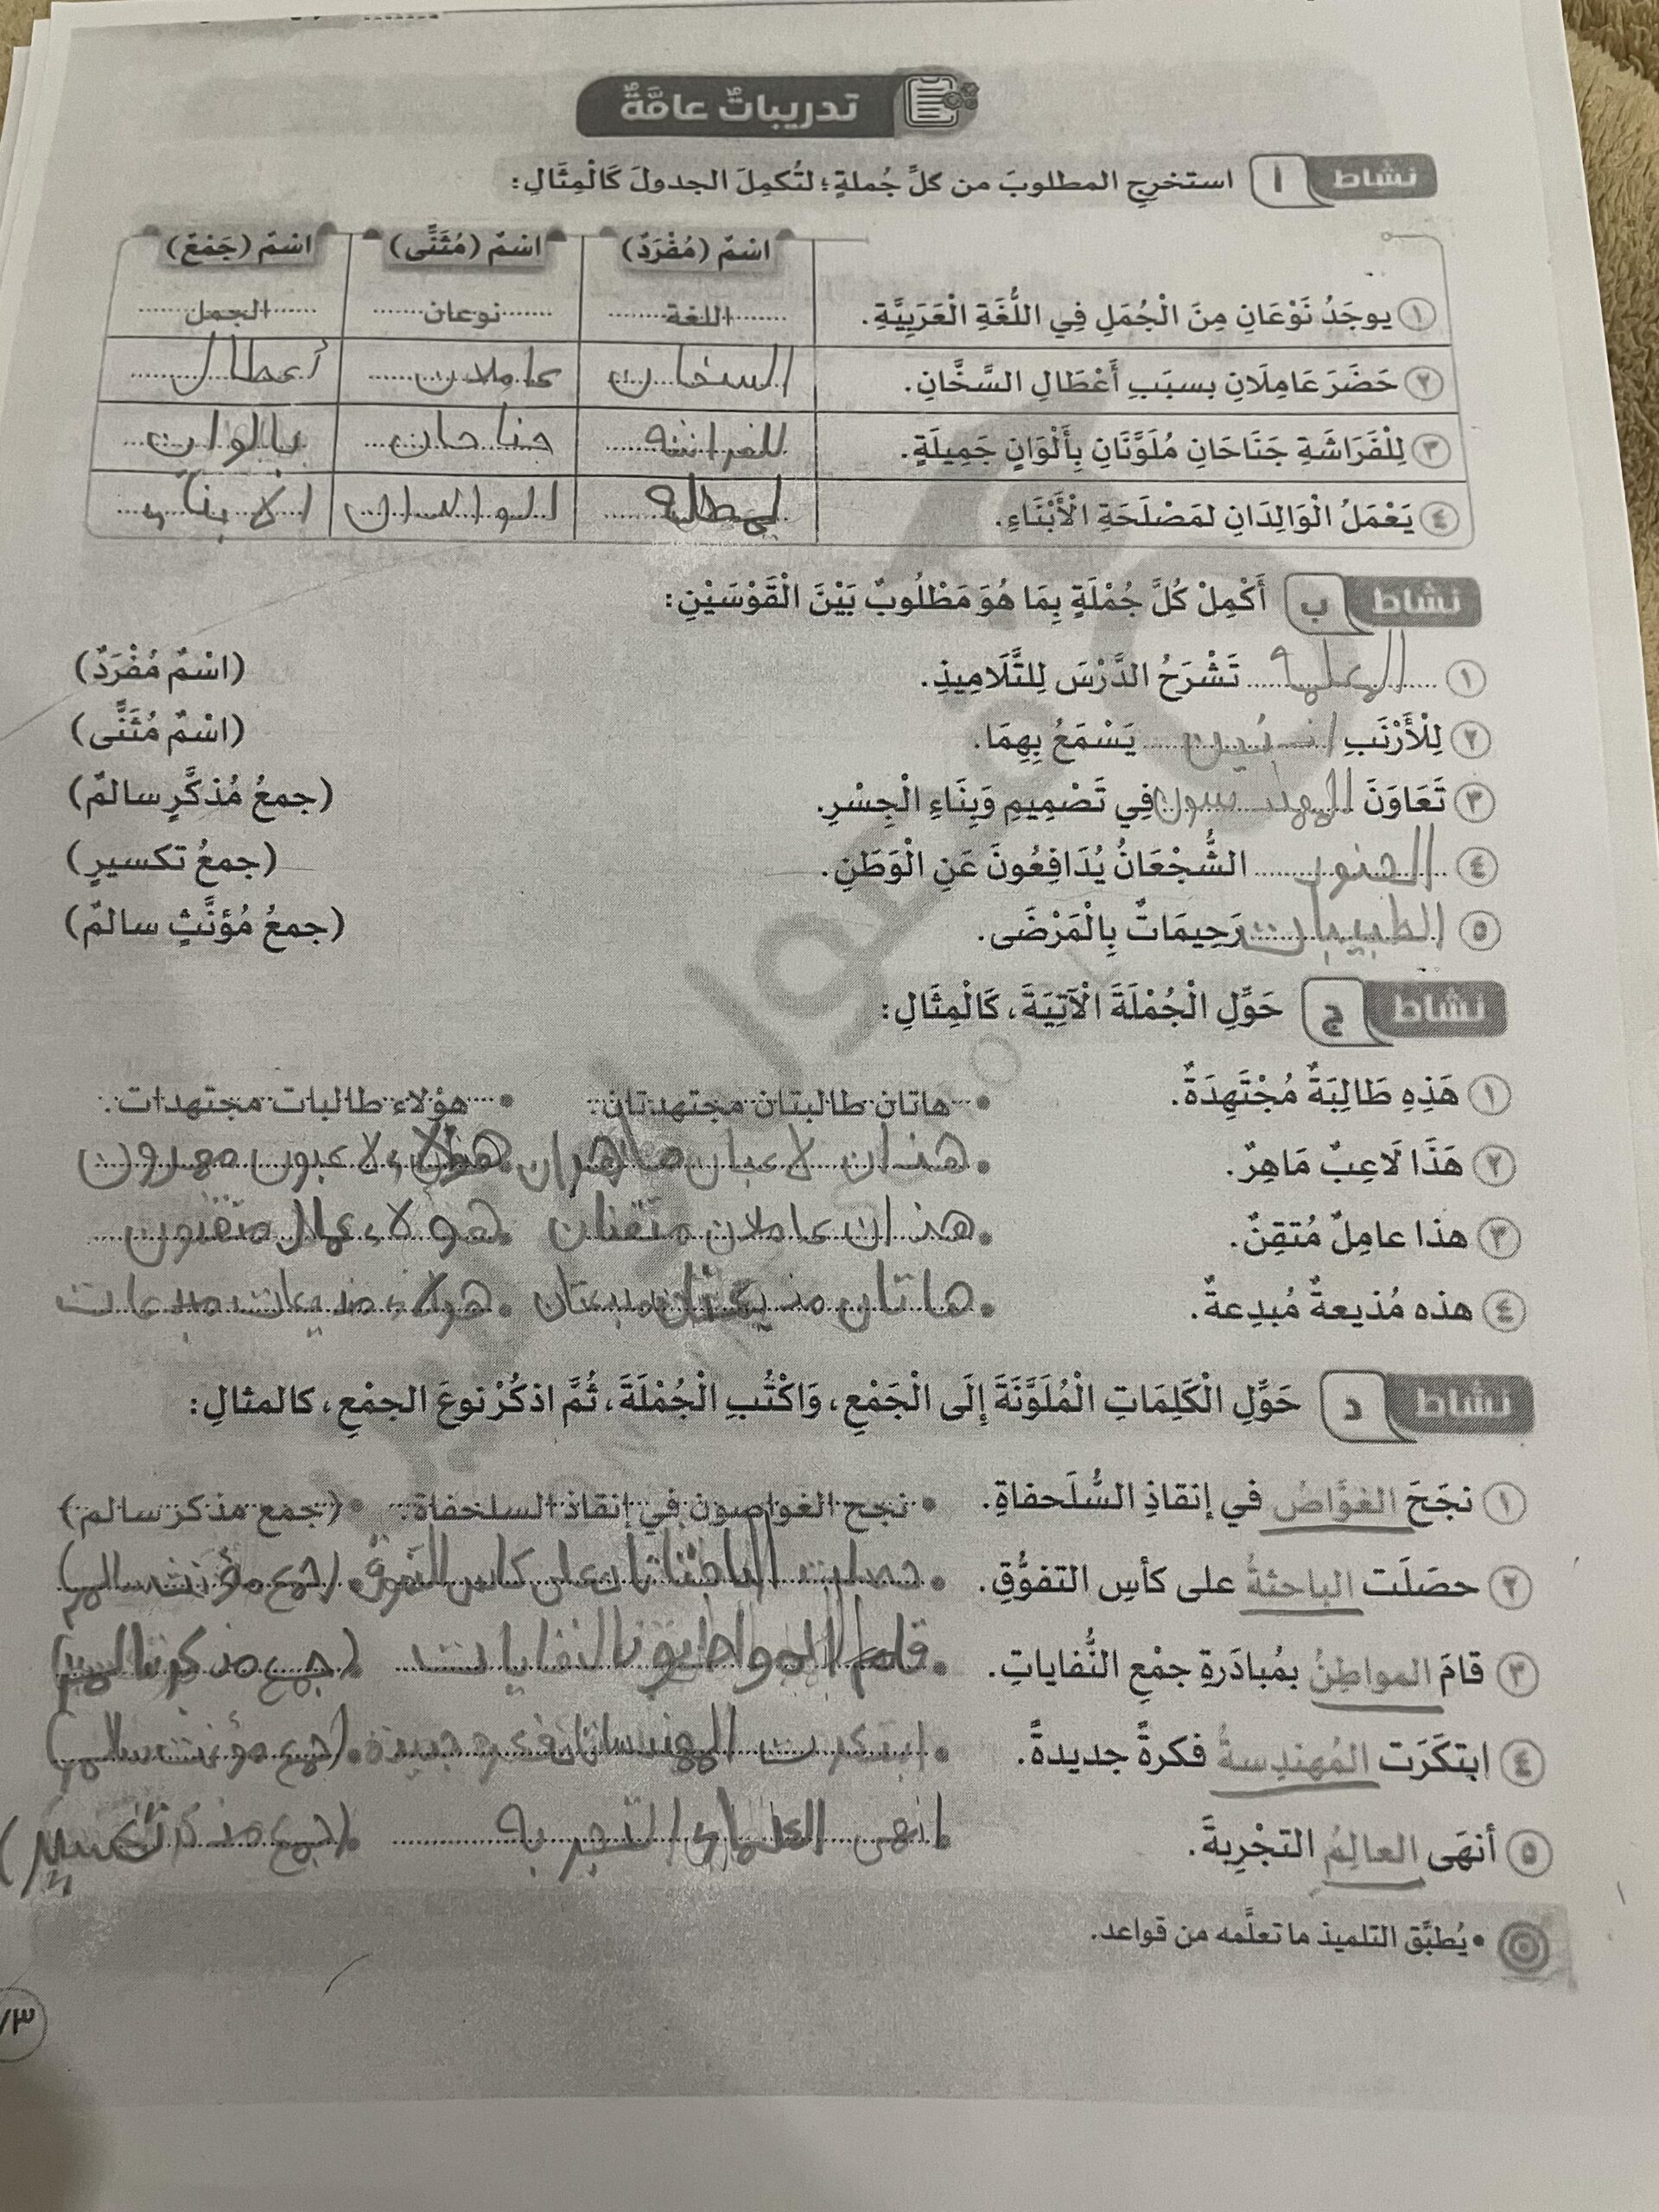 تدريباتٌ عامَّةٌ
نشاط أ استخرِجِ المطلوبَ من كلِّ جُملةٍ؛ لتُكمِلَ الجدولَ كَالْمِثَالِ:
اسْمٌ (مُفْرَدٌ) اسْمٌ (مُثَنًّى) اسْمٌ (جَمْعٌ)
١ يوجَدُ نَوْعَانِ مِنَ الْجُمَلِ فِي اللُّغَةِ الْعَرَبِيَّةِ. اللغة نوعان الجمل
٢ حَضَرَ عَامِلَانِ بسبَبِ أَعْطَالِ السَّخَّانِ. السخان عاملان أعطال
٣ لِلْفَرَاشَةِ جَنَاحَانِ مُلَوَّنَانِ بِأَلْوَانٍ جَمِيلَةٍ. للفراشة جناحان بالوان
٤ يَعْمَلُ الْوَالِدَانِ لمَصْلَحَةِ الْأَبْنَاءِ. الوالدان الابناء
نشاط ب أَكْمِلْ كُلَّ جُمْلَةٍ بِمَا هُوَ مَطْلُوبٌ بَيْنَ الْقَوْسَيْنِ:
١ تَشْرَحُ الدَّرْسَ لِلتَّلَامِيذِ. (اسْمٌ مُفْرَدٌ)
٢ لِلْأَرْنَبِ يَسْمَعُ بِهِمَا. (اسْمٌ مُثَنًّى)
٣ تَعَاوَنَ المهندسون فِي تَصْمِيمِ وَبِنَاءِ الْجِسْرِ. (جمعُ مُذكَّرٍ سالمٌ)
٤ الجنود الشُّجْعَانُ يُدَافِعُونَ عَنِ الْوَطَنِ. (جمعُ تكسيرٍ)
٥ الطبيبات رَحِيمَاتٌ بِالْمَرْضَى. (جمعُ مُؤنَّثٍ سالمٌ)
نشاط ج حَوِّلِ الْجُمْلَةَ الْآتِيَةَ، كَالْمِثَالِ:
١ هَذِهِ طَالِبَةٌ مُجْتَهِدَةٌ. • هاتان طالبتان مجتهدتان. • هؤلاء طالبات مجتهدات.
٢ هَذَا لَاعِبٌ مَاهِرٌ. • هذان لاعبان ماهران • لاعبون
٣ هذا عامِلٌ مُتقِنٌ. • هذان عاملان متقنان • هولاء عمال متقنون
٤ هذه مُذيعةٌ مُبدِعةٌ. • هاتان • هولاء مذيعات مبدعات
نشاط د حَوِّلِ الْكَلِمَاتِ الْمُلَوَّنَةَ إِلَى الْجَمْعِ، وَاكْتُبِ الْجُمْلَةَ، ثُمَّ اذكُرْ نوعَ الجمْعِ، كالمثالِ:
١ نجَحَ الغوَّاصُ في إنقاذِ السُّلَحفاةِ. • نجح الغواصون في إنقاذ السلحفاة. • (جمع مذكر سالم)
٢ حصَلَت الباحثةُ على كأسِ التفوُّقِ. • حصلت على كاس التفوق • (جمع مؤنث سالم)
٣ قامَ المواطِنُ بمُبادَرةِ جمْعِ النُّفاياتِ. • قام النفايات • (جمع مذكر سالم)
٤ ابتكَرَت المُهندِسةُ فكرةً جديدةً. • ابتكرت جديدة • (جمع مؤنث سالم)
٥ أنهَى العالِمُ التجْرِبةَ. • انهى العلماء التجربه • (جمع تكسير)
• يُطبَّق التلميذ ما تعلَّمه من قواعد.